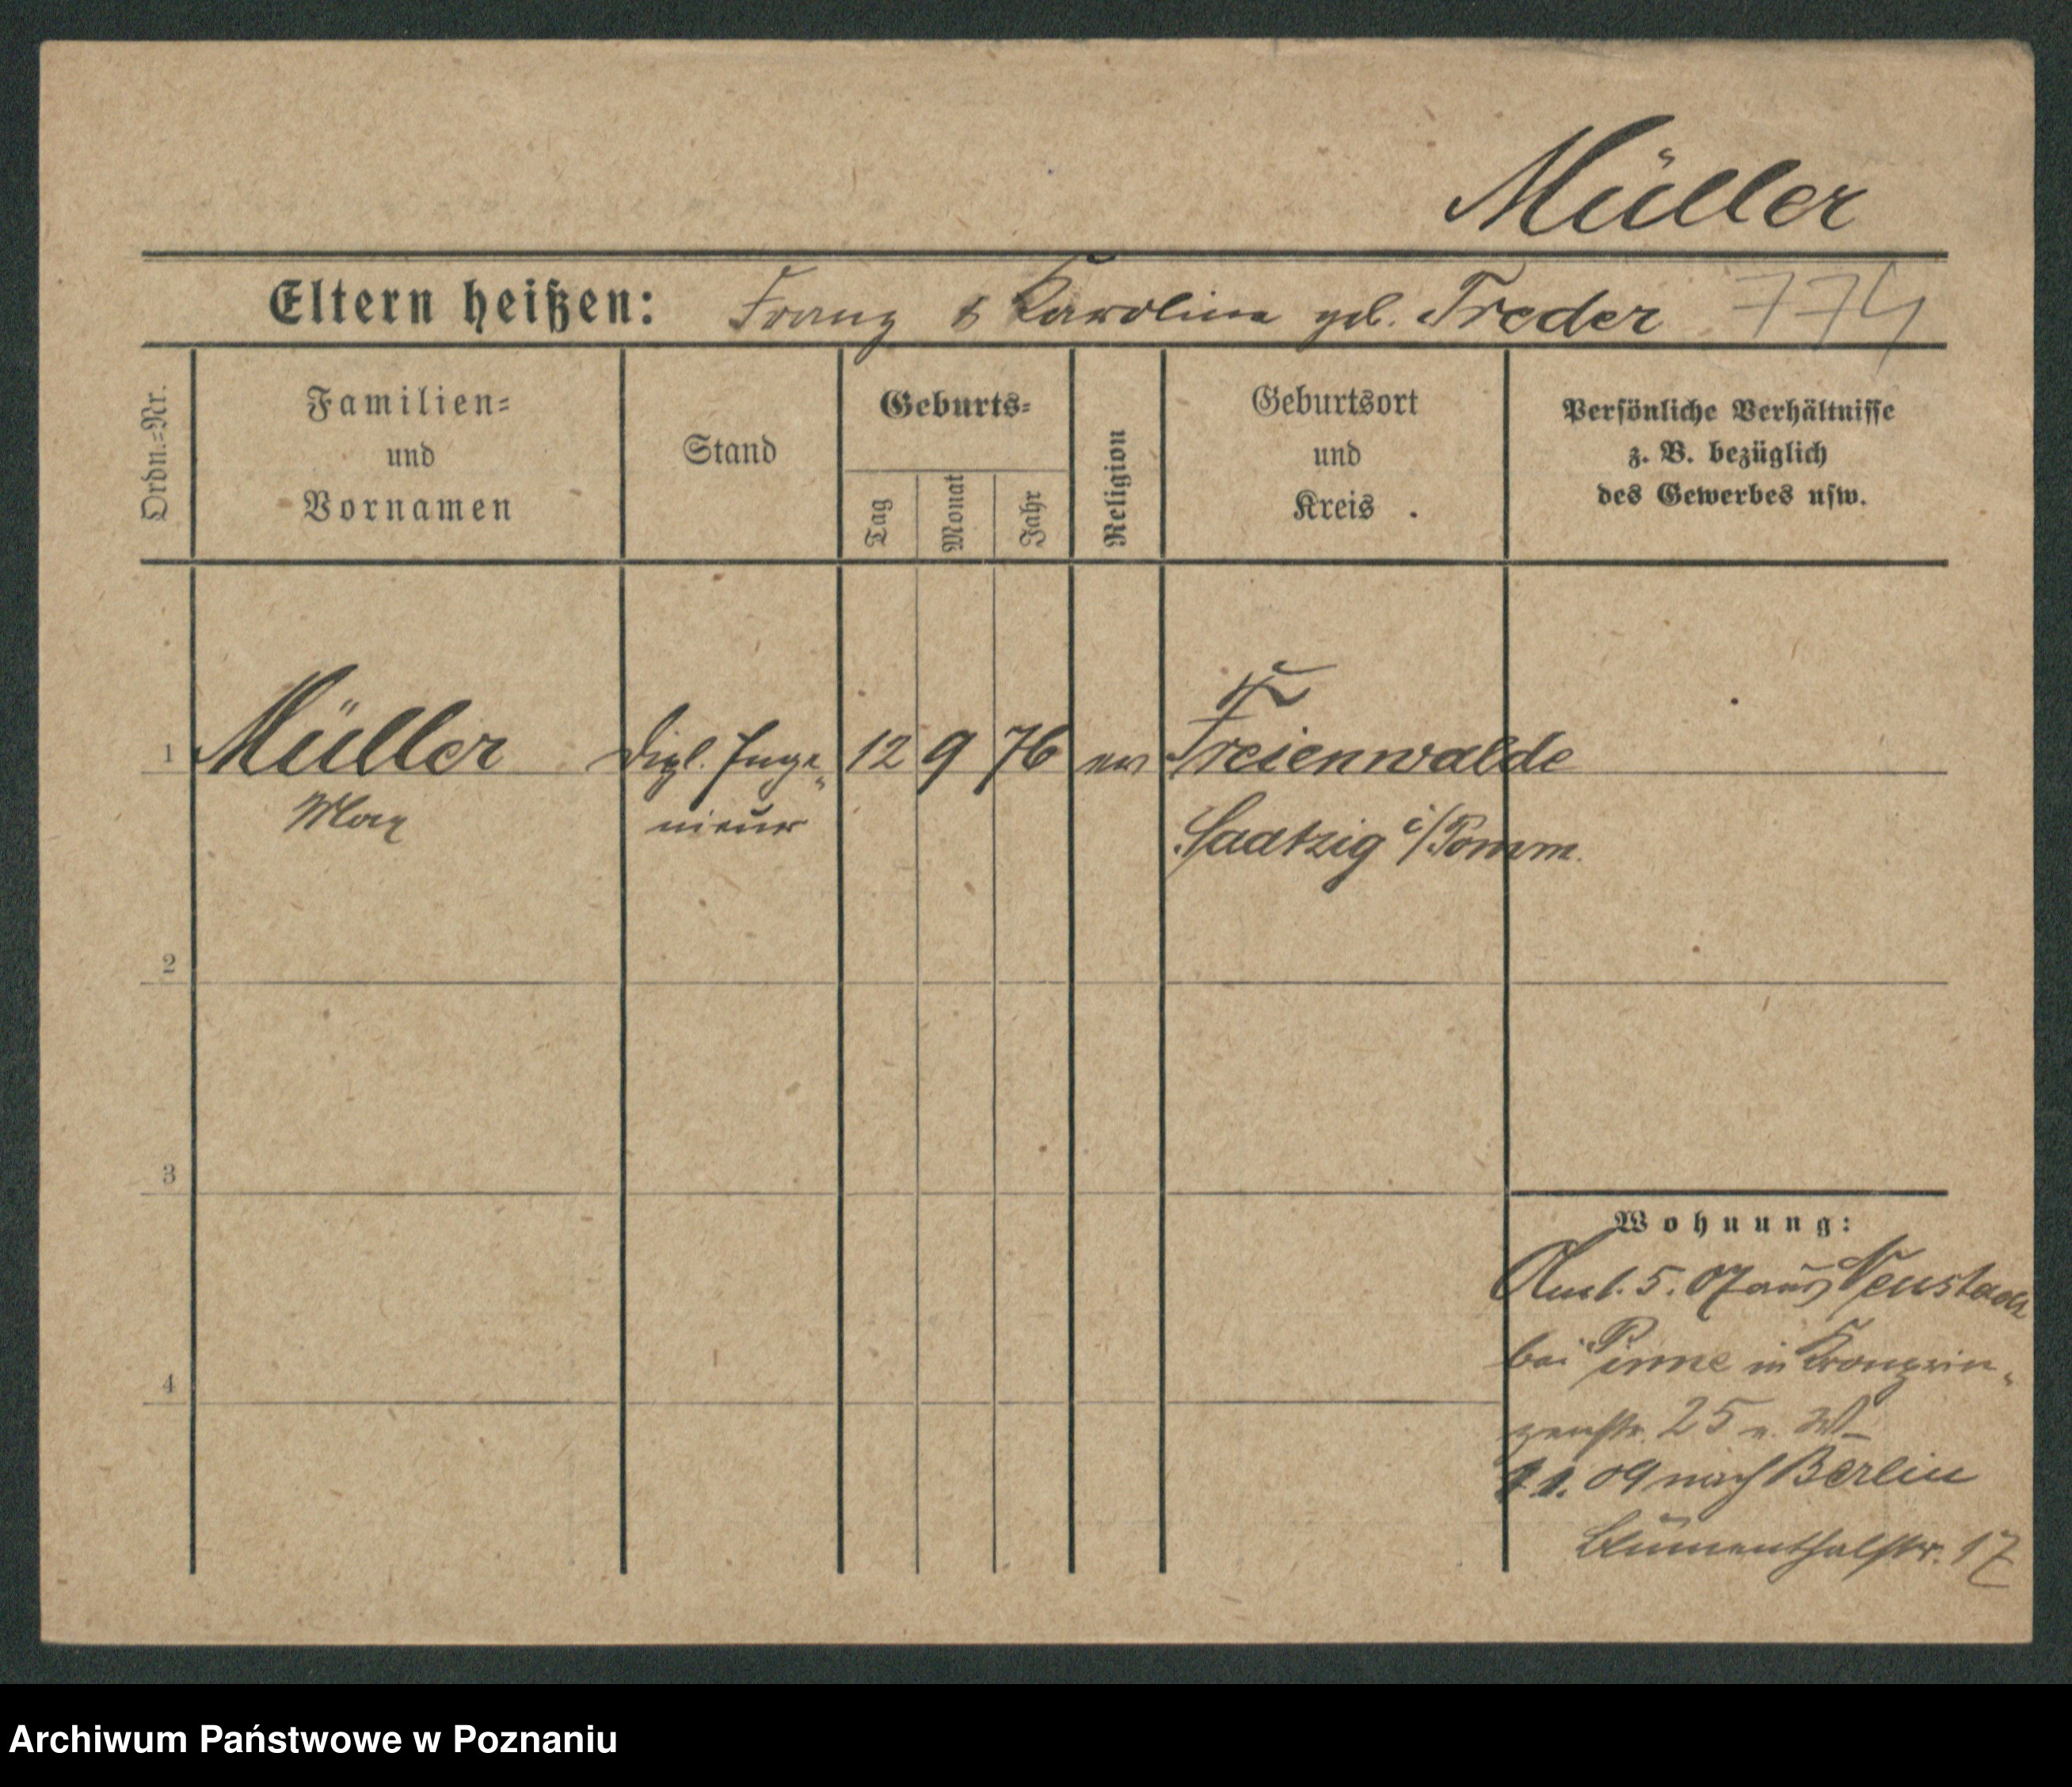 Müller
Eltern heißen: Franz & Karoline geb. Treder 774
Ordn.=Nr.
Familien=
und
Vornamen
Stand
Geburts=
Tag
Monat
Jahr
Religion
Geburtsort
und
Kreis
Persönliche Verhältnisse
z. B. bezüglich
des Gewerbes usw.
1 Müller Dipl. Inge- 12 9 76 ev Freienwalde
Max nieur Saatzig i/Pomm.
2
3
4
Wohnung:
5. 07 aus Neustadt
bei Pinne in Kronprin-
zenstr. 25 n. W
09 nach Berlin
Blumenthalstr. 17
Archiwum Państwowe w Poznaniu